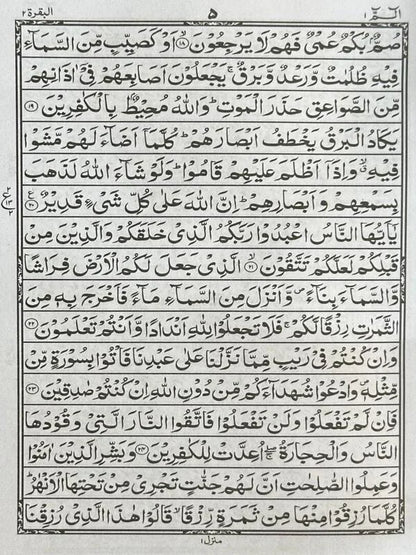 الٓمّٓ ١ ٥ البقرة ٢
صُمٌّۢ بُكْمٌ عُمْىٌ فَهُمْ لَا يَرْجِعُوْنَ ۙ﴿۱۸﴾ اَوْ كَصَيِّبٍ مِّنَ السَّمَآءِ
فِيْهِ ظُلُمٰتٌ وَّرَعْدٌ وَّبَرْقٌ ۚ يَجْعَلُوْنَ اَصَابِعَهُمْ فِىْۤ اٰذَانِهِمْ
مِّنَ الصَّوَاعِقِ حَذَرَ الْمَوْتِ ؕ وَاللّٰهُ مُحِيْطٌۢ بِالْكٰفِرِيْنَ ﴿۱۹﴾
يَكَادُ الْبَرْقُ يَخْطَفُ اَبْصَارَهُمْ ؕ كُلَّمَاۤ اَضَآءَ لَهُمْ مَّشَوْا
فِيْهِ ۙ وَاِذَاۤ اَظْلَمَ عَلَيْهِمْ قَامُوْا ؕ وَلَوْ شَآءَ اللّٰهُ لَذَهَبَ
بِسَمْعِهِمْ وَاَبْصَارِهِمْ ؕ اِنَّ اللّٰهَ عَلٰى كُلِّ شَىْءٍ قَدِيْرٌ ﴿۲۰﴾
يٰۤاَيُّهَا النَّاسُ اعْبُدُوْا رَبَّكُمُ الَّذِىْ خَلَقَكُمْ وَالَّذِيْنَ مِنْ
قَبْلِكُمْ لَعَلَّكُمْ تَتَّقُوْنَ ۙ﴿۲۱﴾ الَّذِىْ جَعَلَ لَكُمُ الْاَرْضَ فِرَاشًا
وَّالسَّمَآءَ بِنَآءً ۪ وَّاَنْزَلَ مِنَ السَّمَآءِ مَآءً فَاَخْرَجَ بِهٖ مِنَ
الثَّمَرٰتِ رِزْقًا لَّكُمْ ۚ فَلَا تَجْعَلُوْا لِلّٰهِ اَنْدَادًا وَّاَنْتُمْ تَعْلَمُوْنَ ﴿۲۲﴾
وَاِنْ كُنْتُمْ فِىْ رَيْبٍ مِّمَّا نَزَّلْنَا عَلٰى عَبْدِنَا فَاْتُوْا بِسُوْرَةٍ مِّنْ
مِّثْلِهٖ ۪ وَادْعُوْا شُهَدَآءَكُمْ مِّنْ دُوْنِ اللّٰهِ اِنْ كُنْتُمْ صٰدِقِيْنَ ﴿۲۳﴾
فَاِنْ لَّمْ تَفْعَلُوْا وَلَنْ تَفْعَلُوْا فَاتَّقُوا النَّارَ الَّتِىْ وَقُوْدُهَا
النَّاسُ وَالْحِجَارَةُ ۖۚ اُعِدَّتْ لِلْكٰفِرِيْنَ ﴿۲۴﴾ وَبَشِّرِ الَّذِيْنَ اٰمَنُوْا
وَعَمِلُوا الصّٰلِحٰتِ اَنَّ لَهُمْ جَنّٰتٍ تَجْرِىْ مِنْ تَحْتِهَا الْاَنْهٰرُ ؕ
كُلَّمَا رُزِقُوْا مِنْهَا مِنْ ثَمَرَةٍ رِّزْقًا ۙ قَالُوْا هٰذَا الَّذِىْ رُزِقْنَا
منزل ١